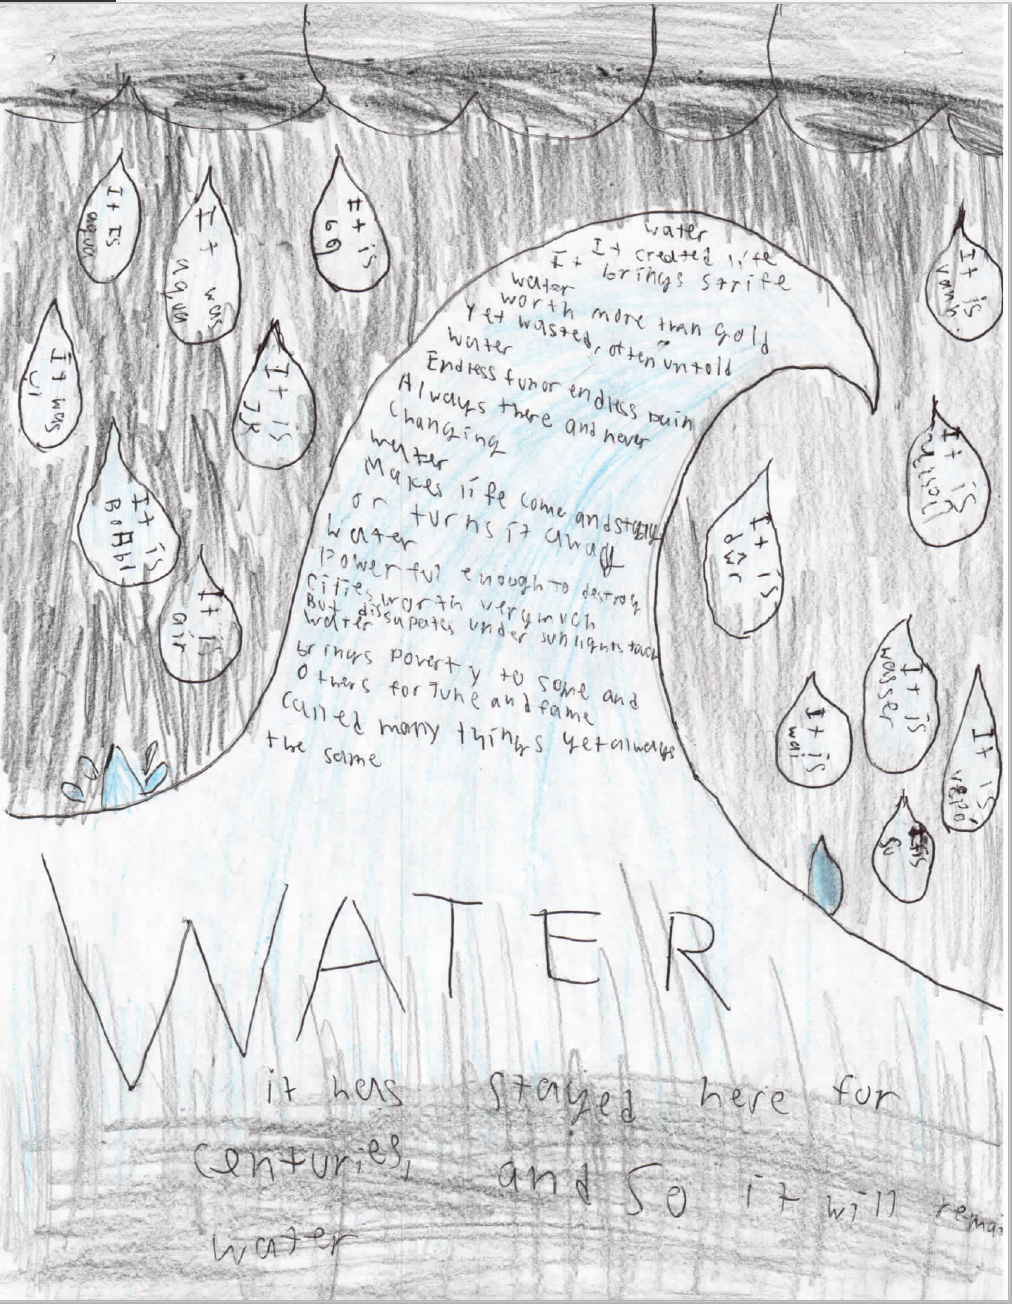 It is
aqua
It was
agua
It is
It was
It is
JR
It is
It is
air
water
It created life
It brings strife
water
worth more than gold
Yet wasted, often untold
water
Endless fun or endless pain
Always there and never
changing
water
Makes life come and stay
or turns it away
water
Powerful enough to destroy
cities, worth very much
But dissupates under sun
water
brings poverty to some and
others fortune and fame
called many things yet always
the same
It is
It is
It is
dwr
It is
wai
It is
wasser
It is
It is
su
WATER
it has stayed here for
centuries, and so it will remai
water